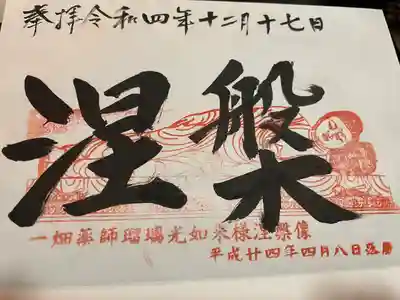 奉拝令和四年十二月十七日
涅槃
一畑薬師瑠璃光如来様涅槃像
平成廿四年四月八日落慶